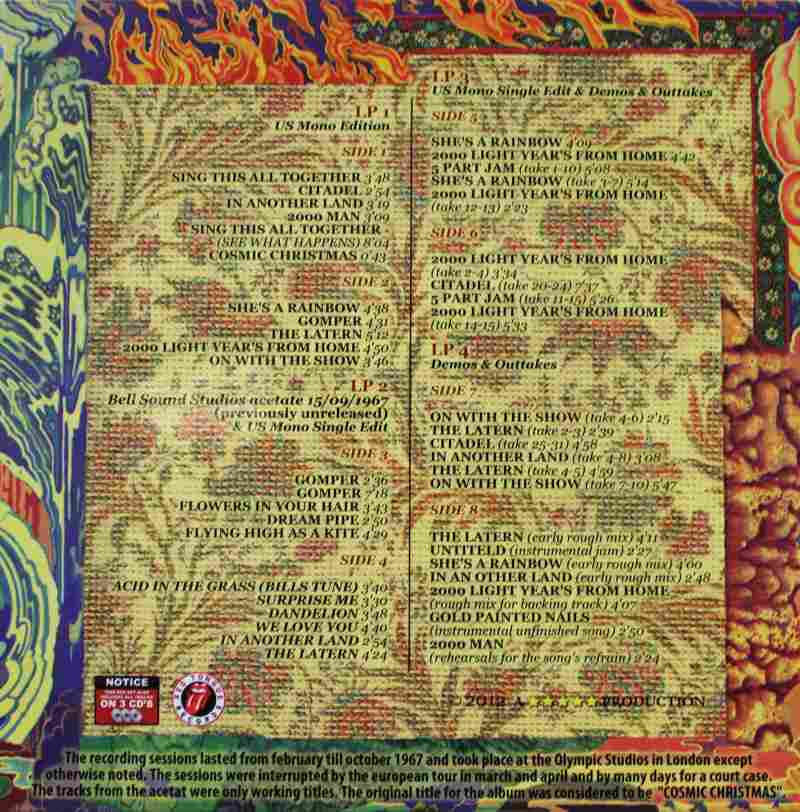 LP 1
US Mono Edition
SIDE 1
SING THIS ALL TOGETHER 3'48
CITADEL 2'54
IN ANOTHER LAND 3'19
2000 MAN 3'09
SING THIS ALL TOGETHER
(SEE WHAT HAPPENS) 8'04
COSMIC CHRISTMAS 0'43
SIDE 2
SHE'S A RAINBOW 4'38
GOMPER 4'31
THE LATERN 5'12
2000 LIGHT YEAR'S FROM HOME 4'50
ON WITH THE SHOW 3'46
LP 2
Bell Sound Studios acetate 15/09/1967
(previously unreleased)
& US Mono Single Edit
SIDE 3
GOMPER 2'36
GOMPER 7'18
FLOWERS IN YOUR HAIR 3'43
DREAM PIPE 2'50
FLYING HIGH AS A KITE 4'29
SIDE 4
ACID IN THE GRASS (BILLS TUNE) 3'40
SURPRISE ME 3'30
DANDELION 3'48
WE LOVE YOU 4'40
IN ANOTHER LAND 2'54
THE LATERN 4'24
LP 3
US Mono Single Edit & Demos & Outtakes
SIDE 5
SHE'S A RAINBOW 4'09
2000 LIGHT YEAR'S FROM HOME 4'42
5 PART JAM (take 1-10) 5'08
SHE'S A RAINBOW (take 3-7) 5'14
2000 LIGHT YEAR'S FROM HOME
(take 12-13) 2'23
SIDE 6
2000 LIGHT YEAR'S FROM HOME
(take 2-4) 3'34
CITADEL (take 20-24) 7'37
5 PART JAM (take 11-15) 5'26
2000 LIGHT YEAR'S FROM HOME
(take 14-15) 5'33
LP 4
Demos & Outtakes
SIDE 7
ON WITH THE SHOW (take 4-6) 2'15
THE LATERN (take 2-3) 2'39
CITADEL (take 25-31) 4'58
IN ANOTHER LAND (take 4-8) 3'08
THE LATERN (take 4-5) 4'59
ON WITH THE SHOW (take 7-10) 5'47
SIDE 8
THE LATERN (early rough mix) 4'11
UNTITELD (instrumental jam) 2'27
SHE'S A RAINBOW (early rough mix) 4'00
IN AN OTHER LAND (early rough mix) 2'48
2000 LIGHT YEAR'S FROM HOME
(rough mix for backing track) 4'07
GOLD PAINTED NAILS
(instrumental unfinished song) 2'50
2000 MAN
(rehearsals for the song's refrain) 2'24
NOTICE
ON 3 CD'S
RECORDS
2012 A PRODUCTION
The recording sessions lasted from february till october 1967 and took place at the Olympic Studios in London except
otherwise noted. The sessions were interrupted by the european tour in march and april and by many days for a court case.
The tracks from the acetat were only working titles. The original title for the album was considered to be "COSMIC CHRISTMAS".